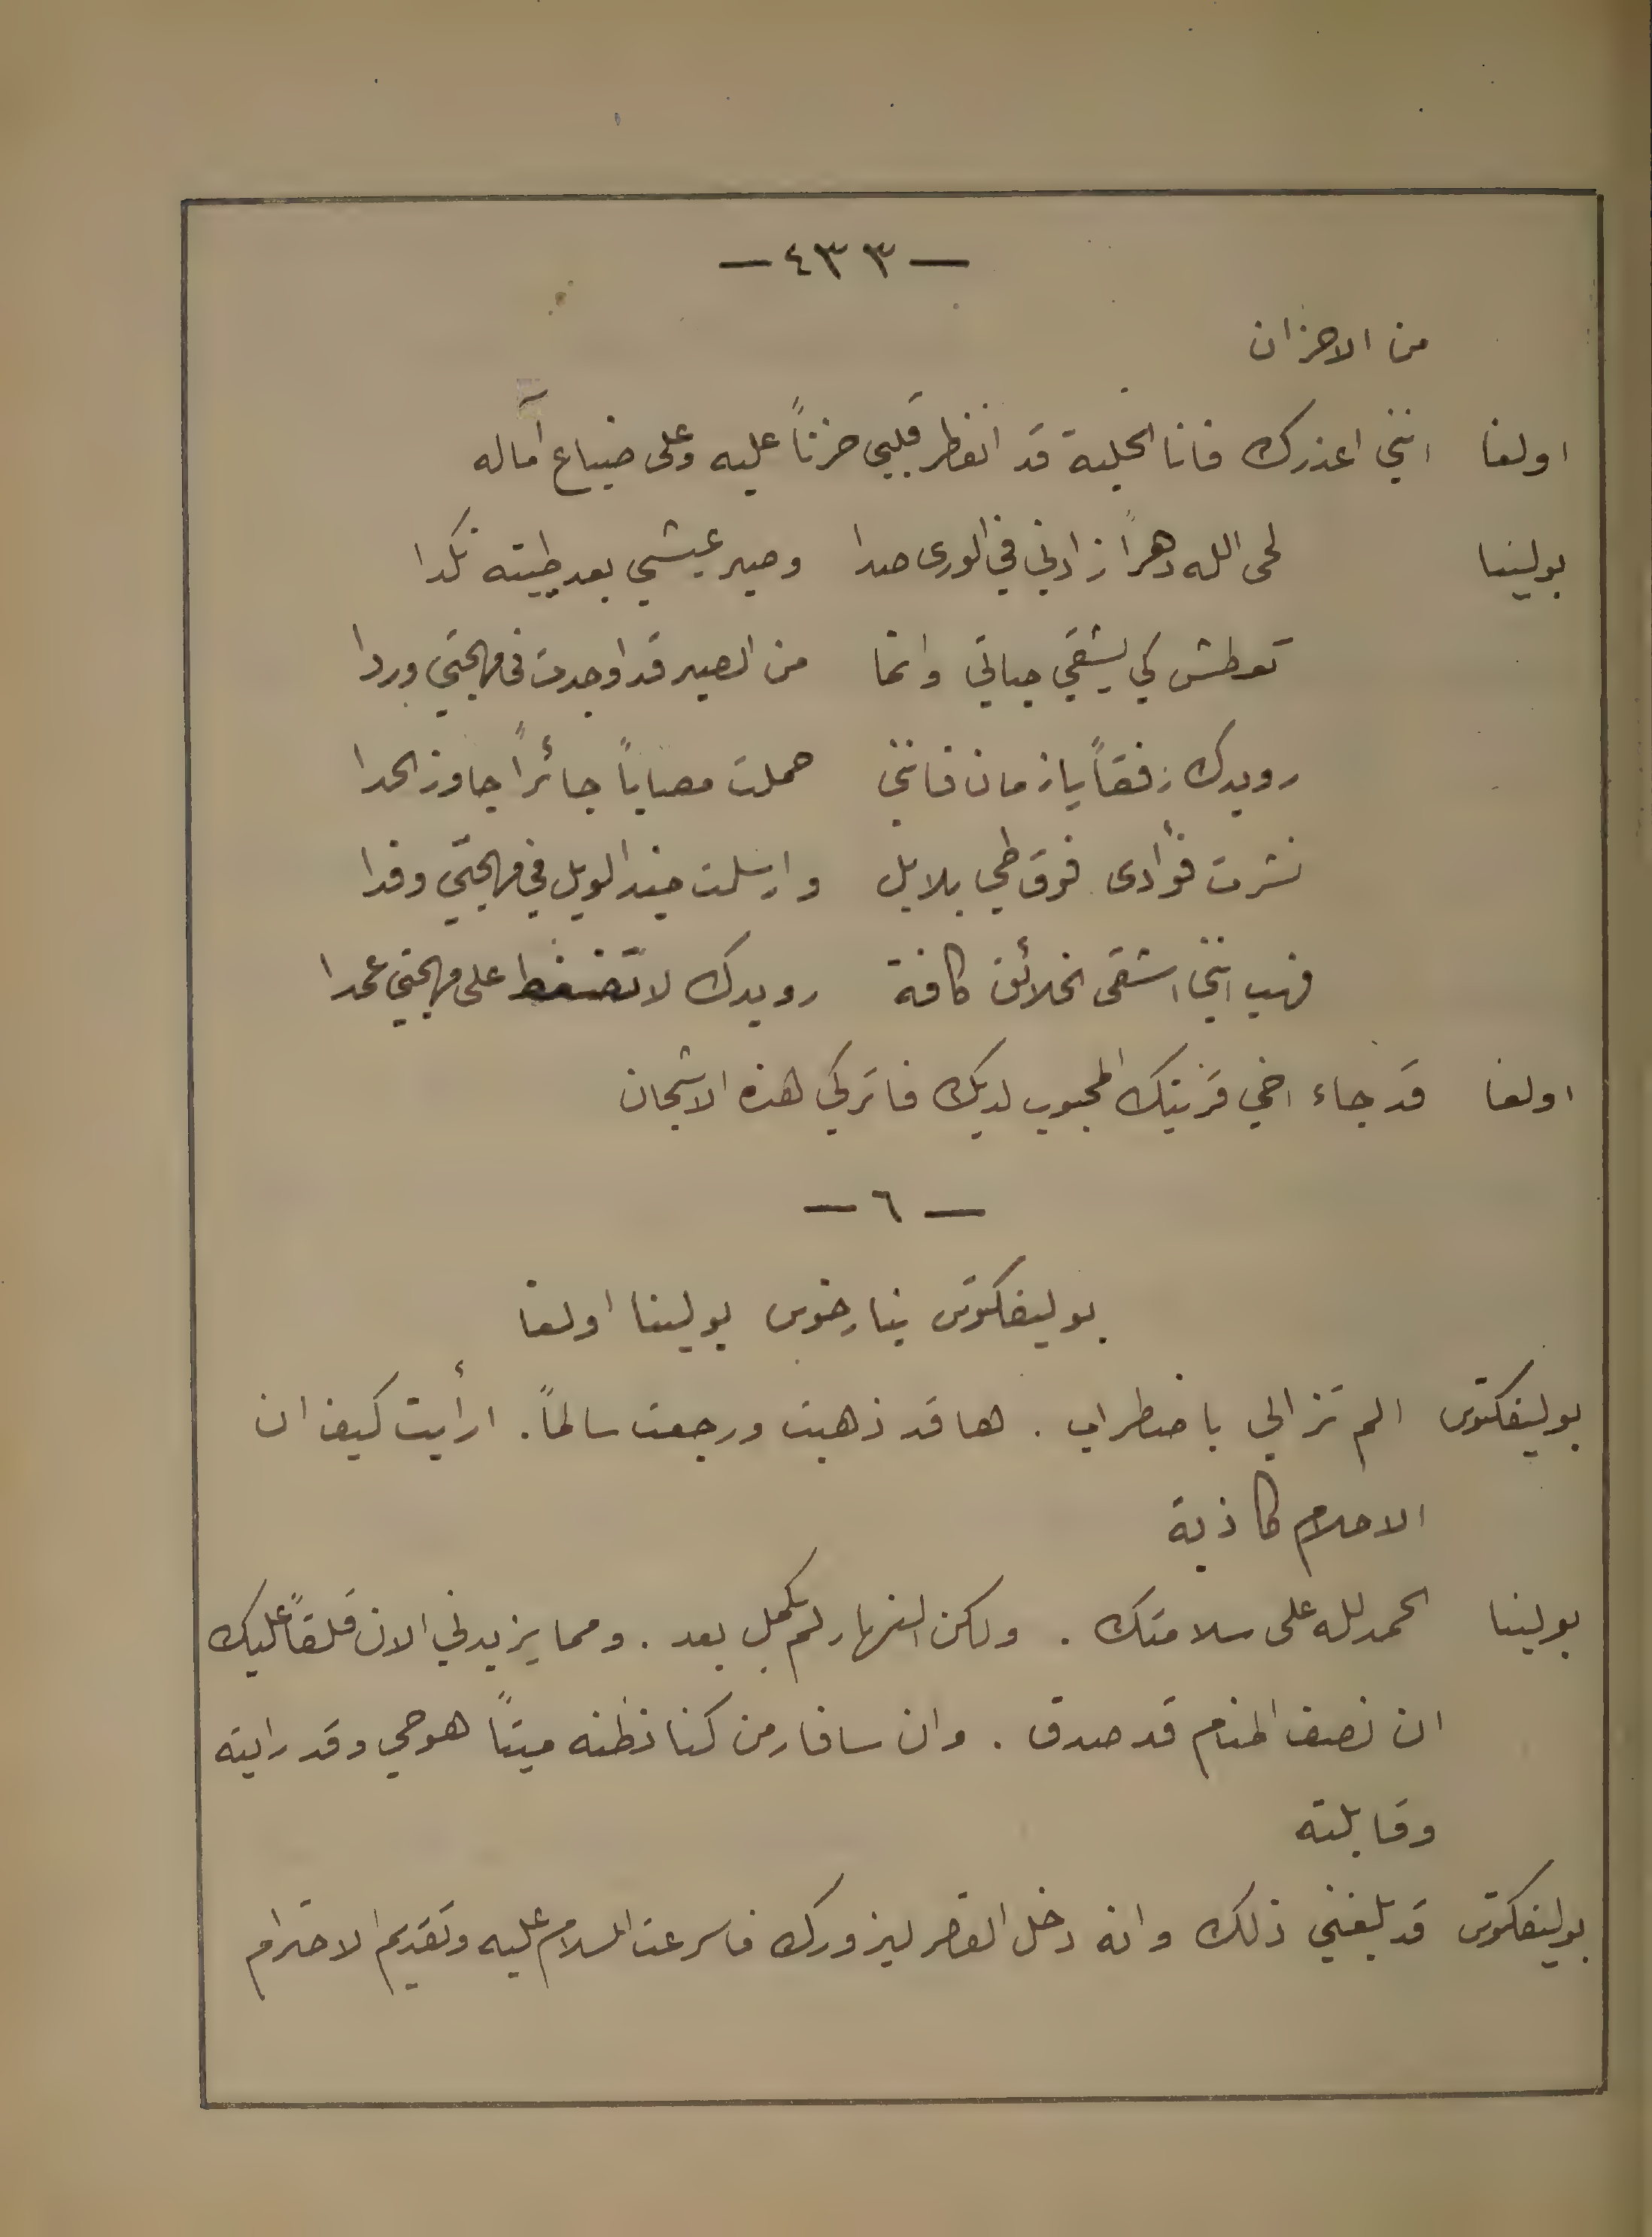 — ٤٣٣ —
من الاحزان
اولغا انني اعذرك فانا الخلية قد انفطر قلبي حزناً عليه وعلى ضياع آماله
بولينا لحى الله دهراً زادني في الورى صدا وصير عيشي بعد طيبته نكدا
تعطش كي يشقي حياتي وانما من الصبر قد اوجدت في مهجتي وردا
رويدك رفقاً يا زمان فانني حملت مصاباً جائراً جاوز الحدا
نشرت فؤادى فوق طي بلابل وارسلت جند الويل في مهجتي وفدا
فهب انني اشقى الخلائق كافة رويدك لا تضغط على مهجتي عمدا
اولغا قد جاء اخي قرينك المحبوب لديك فاتركي هذه الاشجان
— ٦ —
بوليفكتوس نيارخوس بولينا اولغا
بوليفكتوس الم تزالي باضطراب . ها قد ذهبت ورجعت سالماً . ارأيت كيف ان
الاحلام كاذبة
بولينا الحمد لله على سلامتك . ولكن النهار لم يكمل بعد . ومما يزيدني الان قلقاً عليك
ان نصف المنام قد صدق . وان سافارمن كنا نظنه ميتاً هو حي وقد رايته
وقابلته
بوليفكتوس قد بلغني ذلك وانه دخل القصر ليزورك فاسرعت للسلام عليه وتقديم الاحترام